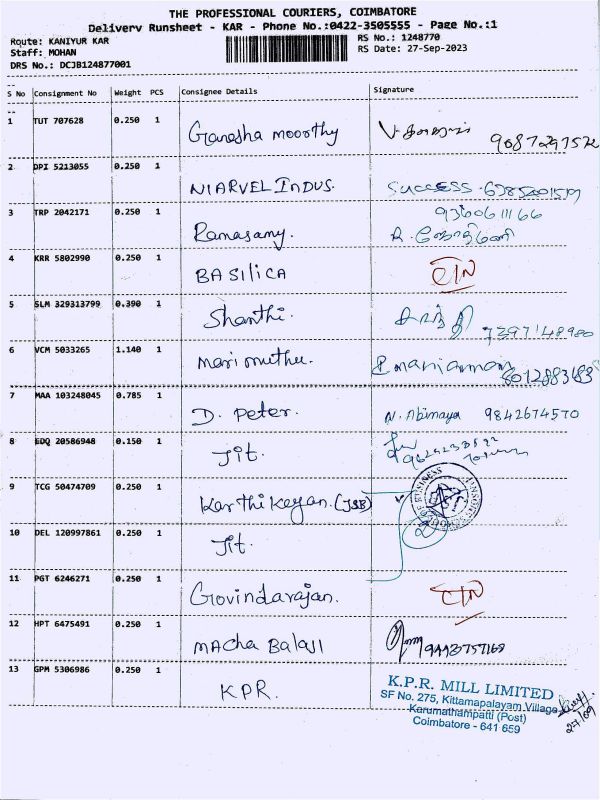 THE PROFESSIONAL COURIERS, COIMBATORE
Delivery Runsheet - KAR - Phone No.:0422-3505555 - Page No.:1
Route: KANIYUR KAR
RS No.: 1248770
Staff: MOHAN
RS Date: 27-Sep-2023
DRS No.: DCJB124877001
S No Consignment No Weight PCS Consignee Details Signature
1 TUT 707628 0.250 1 Ganesha moorthy
2 DPI 5213055 0.250 1 NIARVEL INDUS. Success
9360611166
3 TRP 2042171 0.250 1 Ramasamy. R. ஜோதிமணி
4 KRR 5802990 0.250 1 BASILICA
5 SLM 329313799 0.390 1 Shanthi. சாந்தி
7397148980
6 VCM 5033265 1.140 1 Marimuthu.
8012883683
7 MAA 103248045 0.785 1 D. Peter. N. Abinaya 9842674570
8 EDQ 20586948 0.150 1 Jit.
9 TCG 50474709 0.250 1 Karthikeyan. (JSB)
10 DEL 120997861 0.250 1 Jit.
11 PGT 6246271 0.250 1 Govindarajan.
12 HPT 6475491 0.250 1 Macha Balaji
13 GPM 5306986 0.250 1 KPR.
K.P.R. MILL LIMITED
SF No. 275, Kittampalayam Village,
Karumathampatti (Post)
Coimbatore - 641 659
27/09